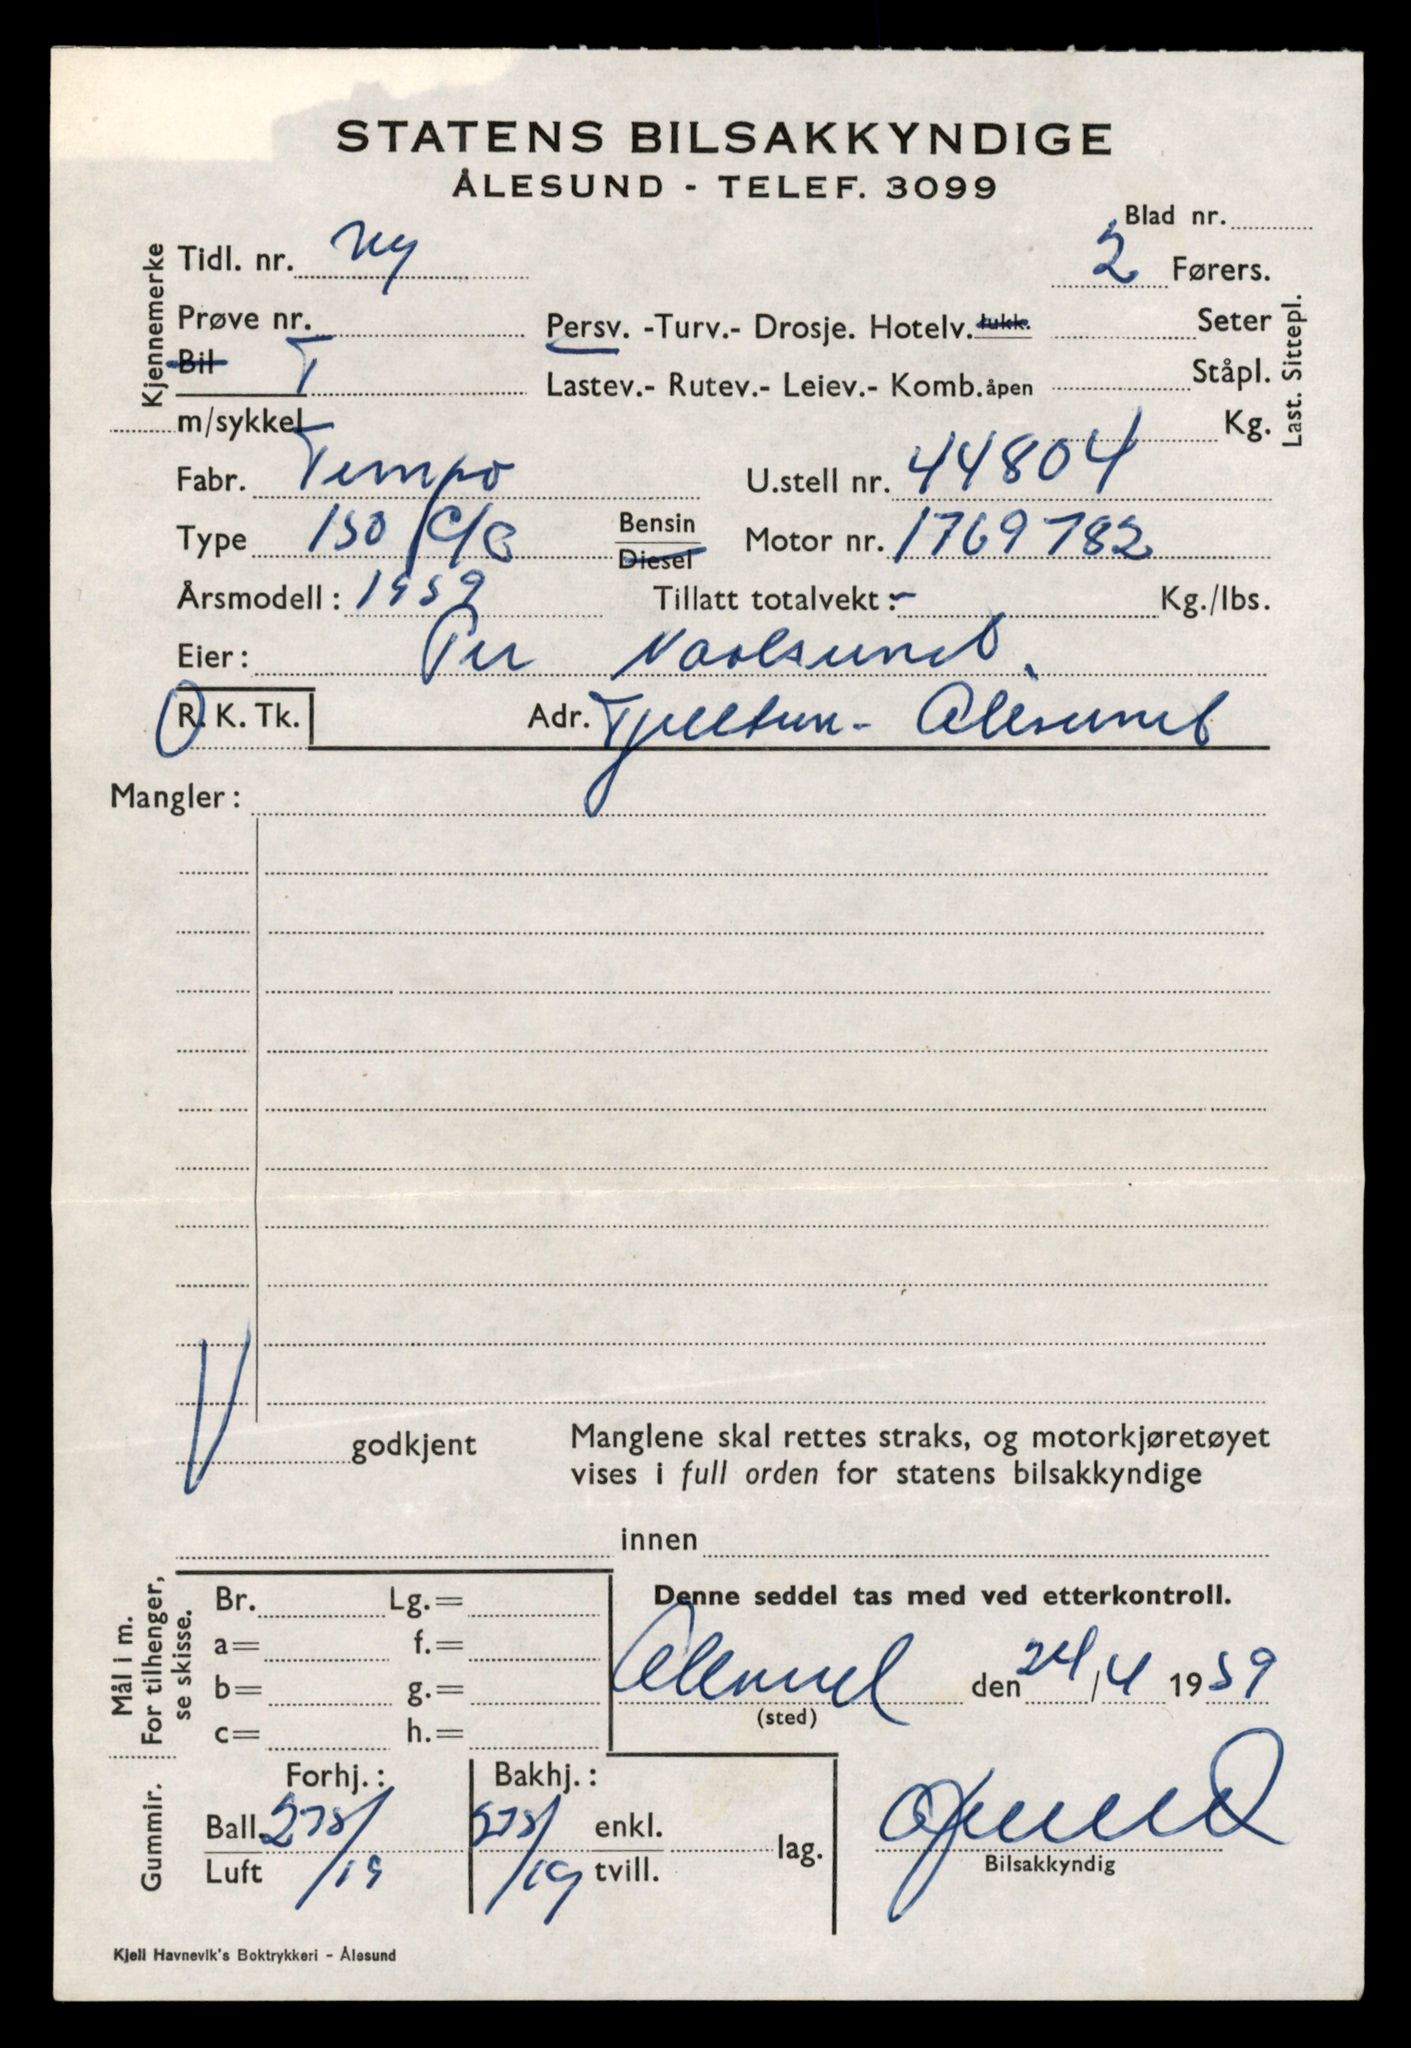 STATENS BILSAKKYNDIGE
ÅLESUND - TELEF. 3099
Blad nr.
Kjennemerke
Tidl. nr. Ny
2 Førers.
Prøve nr.
Persv. -Turv.- Drosje. Hotelv. lukk. Seter
Bil T
Lastev.- Rutev.- Leiev.- Komb. åpen Ståpl.
Last. Sittepl.
m/sykkel Kg.
Fabr. Tempo U.stell nr. 44804
Type 150/C/B Bensin
Diesel Motor nr. 1769782
Årsmodell: 1959 Tillatt totalvekt: - Kg./lbs.
Eier: Per
R. K. Tk. Adr. Ålesund
Mangler:
V godkjent Manglene skal rettes straks, og motorkjøretøyet
vises i full orden for statens bilsakkyndige
innen
Mål i m.
For tilhenger,
se skisse.
Br. Lg.=
a= f.=
b= g.=
c= h.=
Denne seddel tas med ved etterkontroll.
Ålesund den 24/4 1959
(sted)
Gummir.
Forhj.: Bakhj.:
Ball. 275/19 275/19 enkl. lag.
Luft tvill.
Bilsakkyndig
Kjell Havnevik's Boktrykkeri - Ålesund